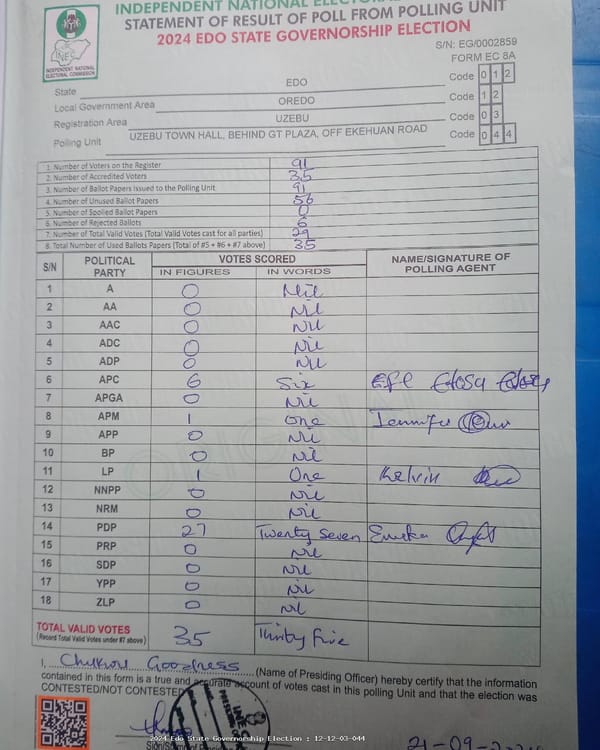 INDEPENDENT NATIONAL ELECTORAL
STATEMENT OF RESULT OF POLL FROM POLLING UNIT
2024 EDO STATE GOVERNORSHIP ELECTION
INEC
INDEPENDENT NATIONAL ELECTORAL COMMISSION
S/N: EG/0002859
FORM EC 8A
State EDO Code 0 1 2
Local Government Area OREDO Code 1 2
Registration Area UZEBU Code 0 3
Polling Unit UZEBU TOWN HALL, BEHIND GT PLAZA, OFF EKEHUAN ROAD Code 0 4 4
1. Number of Voters on the Register 91
2. Number of Accredited Voters 35
3. Number of Ballot Papers Issued to the Polling Unit 91
4. Number of Unused Ballot Papers 56
5. Number of Spoiled Ballot Papers 0
6. Number of Rejected Ballots 6
7. Number of Total Valid Votes (Total Valid Votes cast for all parties) 29
8. Total Number of Used Ballots Papers (Total of #5 + #6 + #7 above) 35
S/N POLITICAL PARTY VOTES SCORED NAME/SIGNATURE OF POLLING AGENT
IN FIGURES IN WORDS
1 A 0 Nil
2 AA 0 Nil
3 AAC 0 Nil
4 ADC 0 Nil
5 ADP 0 Nil
6 APC 6 Six Efe Edosa
7 APGA 0 Nil
8 APM 1 One Jennifer
9 APP 0 Nil
10 BP 0 Nil
11 LP 1 One Kelvin
12 NNPP 0 Nil
13 NRM 0 Nil
14 PDP 27 Twenty Seven Emeka
15 PRP 0 Nil
16 SDP 0 Nil
17 YPP 0 Nil
18 ZLP 0 Nil
TOTAL VALID VOTES 35 Thirty Five
(Record Total Valid Votes under #7 above)
I, Goodness (Name of Presiding Officer) hereby certify that the information
contained in this form is a true and accurate account of votes cast in this polling Unit and that the election was
CONTESTED/NOT CONTESTED
2024 Edo State Governorship Election : 12-12-03-044
21-09-